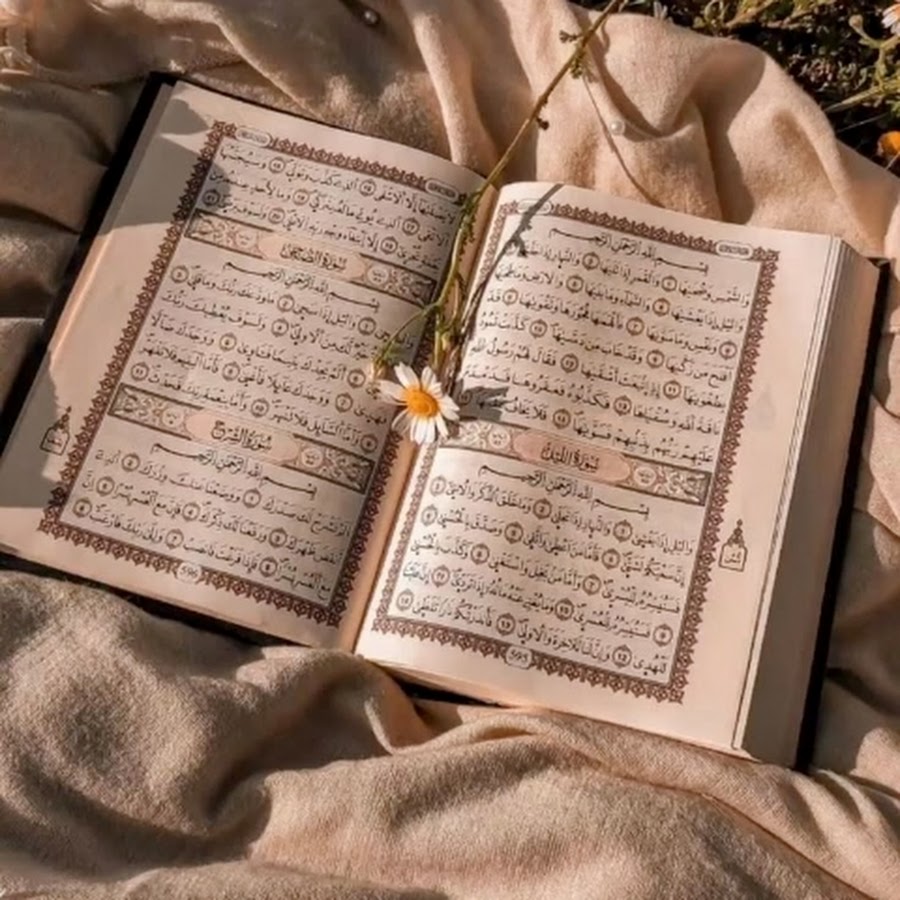 بِسْمِ اللَّهِ الرَّحْمَٰنِ الرَّحِيمِ
وَالشَّمْسِ وَضُحَىٰهَا ١ وَالْقَمَرِ إِذَا تَلَىٰهَا ٢ وَالنَّهَارِ إِذَا
وَالَّيْلِ إِذَا يَغْشَىٰهَا ٤ وَالسَّمَاءِ وَمَا بَنَىٰهَا ٥ وَالْأَرْضِ وَمَا طَحَىٰهَا
٦ وَنَفْسٍ وَمَا سَوَّىٰهَا ٧ فَأَلْهَمَهَا فُجُورَهَا وَتَقْوَىٰهَا ٨ قَدْ
أَفْلَحَ مَن زَكَّىٰهَا ٩ وَقَدْ خَابَ مَن دَسَّىٰهَا ١٠ كَذَّبَتْ ثَمُودُ
بِطَغْوَىٰهَا ١١ إِذِ انۢبَعَثَ أَشْقَىٰهَا ١٢ فَقَالَ لَهُمْ رَسُولُ اللَّهِ
نَاقَةَ اللَّهِ وَسُقْيَٰهَا ١٣ فَكَذَّبُوهُ فَعَقَرُوهَا فَدَمْدَمَ
عَلَيْهِمْ رَبُّهُم بِذَنۢبِهِمْ فَسَوَّىٰهَا ١٤ فَلَا يَخَافُ
سُورَةُ اللَّيْلِ
بِسْمِ اللَّهِ الرَّحْمَٰنِ الرَّحِيمِ
وَالَّيْلِ إِذَا يَغْشَىٰ ١ وَالنَّهَارِ إِذَا تَجَلَّىٰ ٢ وَمَا خَلَقَ الذَّكَرَ وَالْأُنثَىٰ ٣
إِنَّ سَعْيَكُمْ لَشَتَّىٰ ٤ فَأَمَّا مَنْ أَعْطَىٰ وَاتَّقَىٰ ٥ وَصَدَّقَ بِالْحُسْنَىٰ ٦
فَسَنُيَسِّرُهُ لِلْيُسْرَىٰ ٧ وَأَمَّا مَنۢ بَخِلَ وَاسْتَغْنَىٰ ٨ وَكَذَّبَ بِالْحُسْنَىٰ
٩ فَسَنُيَسِّرُهُ لِلْعُسْرَىٰ ١٠ وَمَا يُغْنِي عَنْهُ مَالُهُ إِذَا تَرَدَّىٰ ١١ إِنَّ عَلَيْنَا
لَلْهُدَىٰ ١٢ وَإِنَّ لَنَا لَلْآخِرَةَ وَالْأُولَىٰ ١٣ فَأَنذَرْتُكُمْ نَارًا تَلَظَّىٰ ١٤
595
لَا يَصْلَىٰهَا إِلَّا الْأَشْقَى ١٥ الَّذِي كَذَّبَ وَتَوَلَّىٰ ١٦ وَسَيُجَنَّبُهَا
الْأَتْقَى ١٧ الَّذِي يُؤْتِي مَالَهُ يَتَزَكَّىٰ ١٨ وَمَا لِأَحَدٍ عِندَهُ مِن
نِّعْمَةٍ تُجْزَىٰ ١٩ إِلَّا ابْتِغَاءَ وَجْهِ رَبِّهِ الْأَعْلَىٰ ٢٠ وَلَسَوْفَ يَرْضَىٰ ٢١
سُورَةُ الضُّحَىٰ
بِسْمِ اللَّهِ الرَّحْمَٰنِ الرَّحِيمِ
وَالَّيْلِ إِذَا سَجَىٰ ٢ مَا وَدَّعَكَ رَبُّكَ وَمَا قَلَىٰ ٣
خَيْرٌ لَّكَ مِنَ الْأُولَىٰ ٤ وَلَسَوْفَ يُعْطِيكَ رَبُّكَ
أَلَمْ يَجِدْكَ يَتِيمًا فَـَٔاوَىٰ ٦ وَوَجَدَكَ ضَالًّا
فَهَدَىٰ ٧ وَوَجَدَكَ عَائِلًا فَأَغْنَىٰ ٨ فَأَمَّا الْيَتِيمَ فَلَا تَقْهَرْ
٩ وَأَمَّا السَّائِلَ فَلَا تَنْهَرْ ١٠ وَأَمَّا بِنِعْمَةِ رَبِّكَ فَحَدِّثْ ١١
سُورَةُ الشَّرْحِ
بِسْمِ اللَّهِ الرَّحْمَٰنِ الرَّحِيمِ
أَلَمْ نَشْرَحْ لَكَ صَدْرَكَ ١ وَوَضَعْنَا عَنكَ وِزْرَكَ ٢ الَّذِي
أَنقَضَ ظَهْرَكَ ٣ وَرَفَعْنَا لَكَ ذِكْرَكَ ٤ فَإِنَّ مَعَ الْعُسْرِ يُسْرًا ٥ إِنَّ
مَعَ الْعُسْرِ يُسْرًا ٦ فَإِذَا فَرَغْتَ فَانصَبْ ٧ وَإِلَىٰ رَبِّكَ فَارْغَب ٨
596